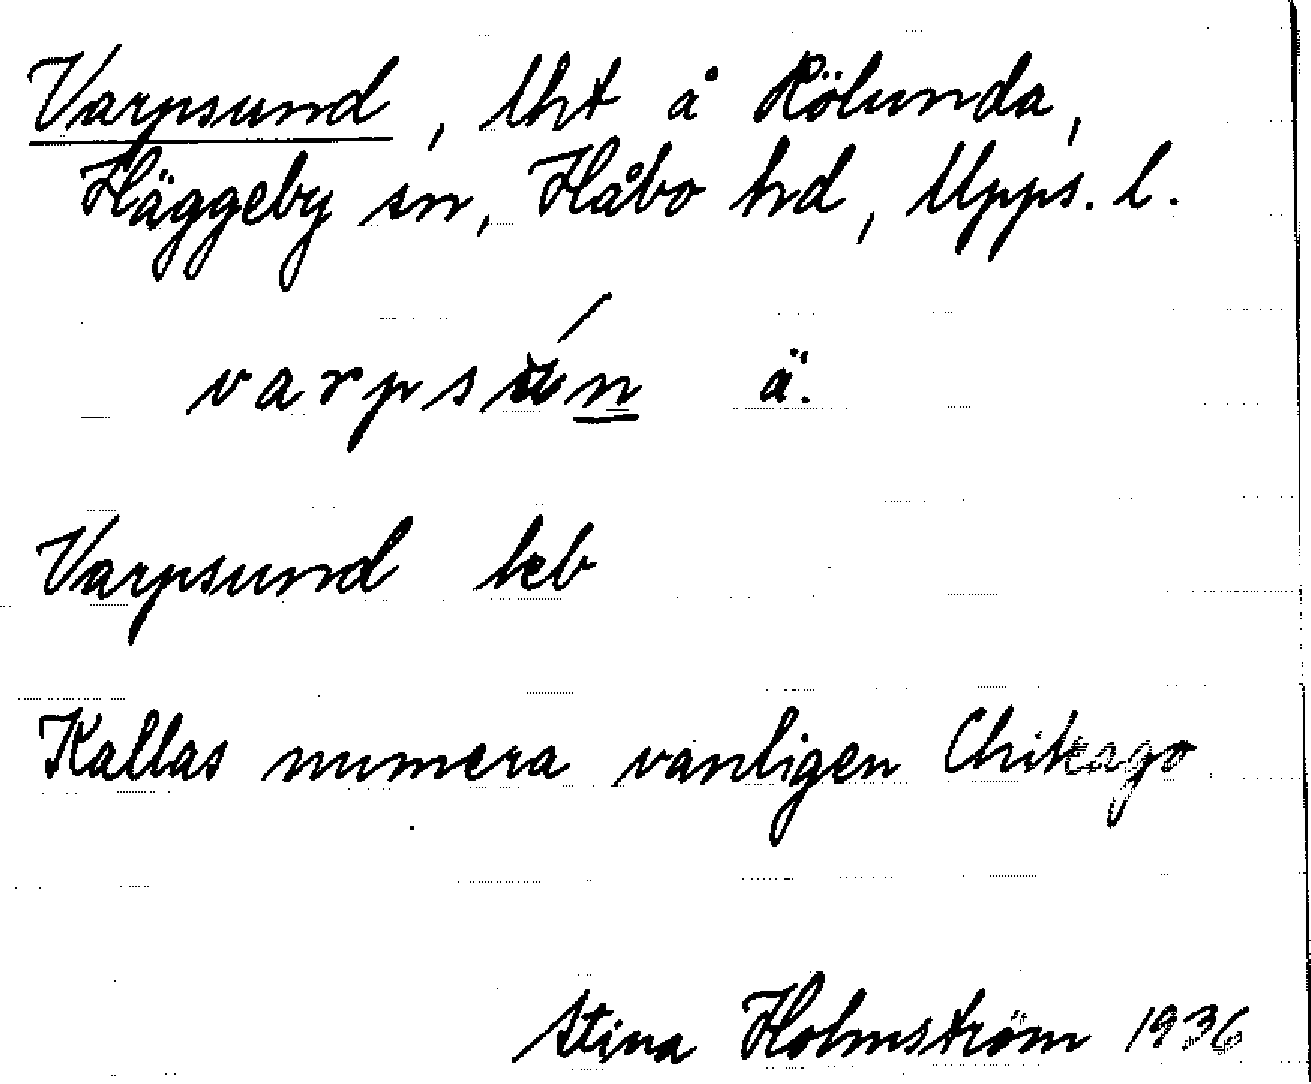 Varpsund, lht å Rölunda,
Häggeby sn, Håbo hd, Upps. l.
varpsún ä.
Varpsund keb
Kallas numera vanligen Chikago
Stina Holmström 1936